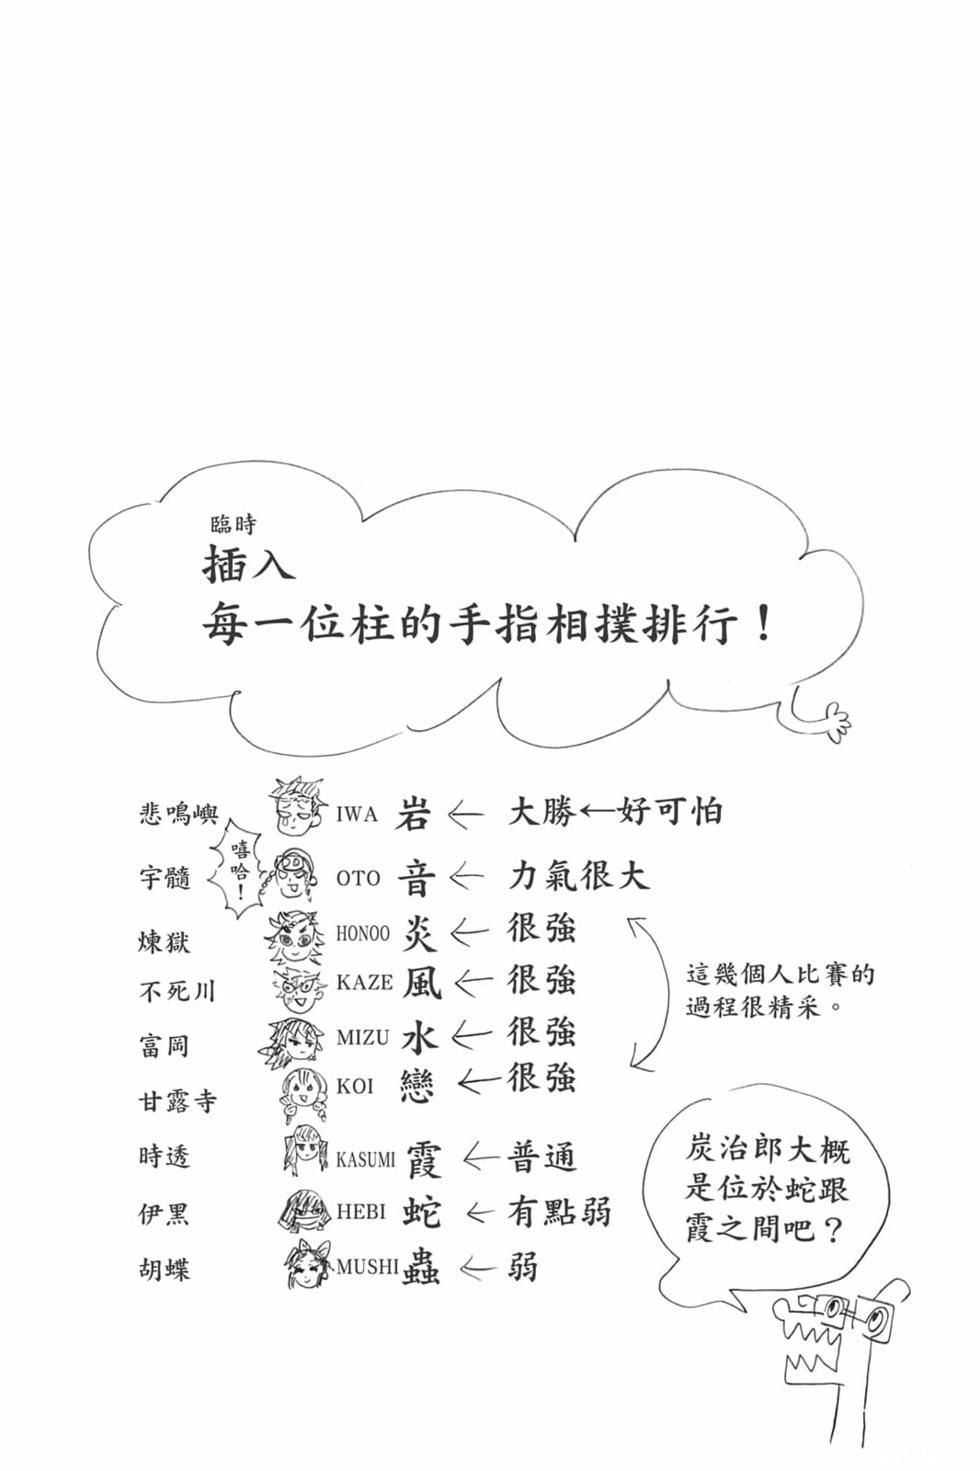 臨時
插入
每一位柱的手指相撲排行！
悲鳴嶼 IWA 岩 ← 大勝←好可怕
嘻哈！
宇髓 OTO 音 ← 力氣很大
煉獄 HONOO 炎 ← 很強
不死川 KAZE 風 ← 很強
富岡 MIZU 水 ← 很強
甘露寺 KOI 戀 ← 很強
這幾個人比賽的
過程很精采。
時透 KASUMI 霞 ← 普通
伊黑 HEBI 蛇 ← 有點弱
胡蝶 MUSHI 蟲 ← 弱
炭治郎大概
是位於蛇跟
霞之間吧？